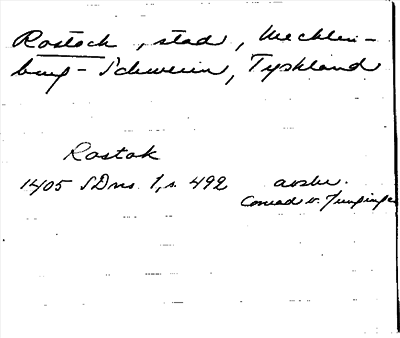 Rostock, stad, Mecklen-
burg-Schwerin, Tyskland
Rostok
1405 SDns 1, s. 492 avskr.
Conrad v. Jungingen